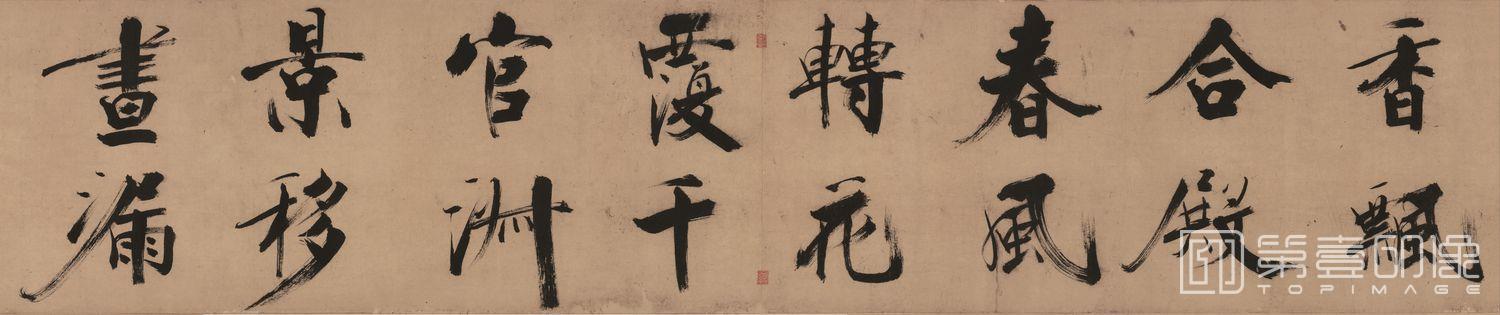 香飄
合殿
春風
轉花
覆千
官淑
景移
晝漏
第壹印像
TOPIMAGE